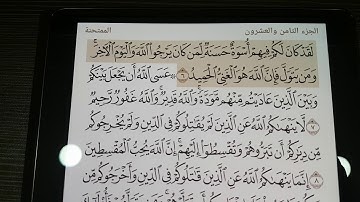 الجزء الثامن والعشرون
الممتحنة
لَقَدْ كَانَ لَكُمْ فِيهِمْ أُسْوَةٌ حَسَنَةٌ لِّمَن كَانَ يَرْجُوا۟ ٱللَّهَ وَٱلْيَوْمَ ٱلْـَٔاخِرَ ۚ
وَمَن يَتَوَلَّ فَإِنَّ ٱللَّهَ هُوَ ٱلْغَنِىُّ ٱلْحَمِيدُ ٦ عَسَى ٱللَّهُ أَن يَجْعَلَ بَيْنَكُمْ
وَبَيْنَ ٱلَّذِينَ عَادَيْتُم مِّنْهُم مَّوَدَّةً ۚ وَٱللَّهُ قَدِيرٌ ۚ وَٱللَّهُ غَفُورٌ رَّحِيمٌ
٧ لَّا يَنْهَىٰكُمُ ٱللَّهُ عَنِ ٱلَّذِينَ لَمْ يُقَٰتِلُوكُمْ فِى ٱلدِّينِ وَلَمْ يُخْرِجُوكُم
مِّن دِيَٰرِكُمْ أَن تَبَرُّوهُمْ وَتُقْسِطُوٓا۟ إِلَيْهِمْ ۚ إِنَّ ٱللَّهَ يُحِبُّ ٱلْمُقْسِطِينَ
٨ إِنَّمَا يَنْهَىٰكُمُ ٱللَّهُ عَنِ ٱلَّذِينَ قَٰتَلُوكُمْ فِى ٱلدِّينِ وَأَخْرَجُوكُم مِّن